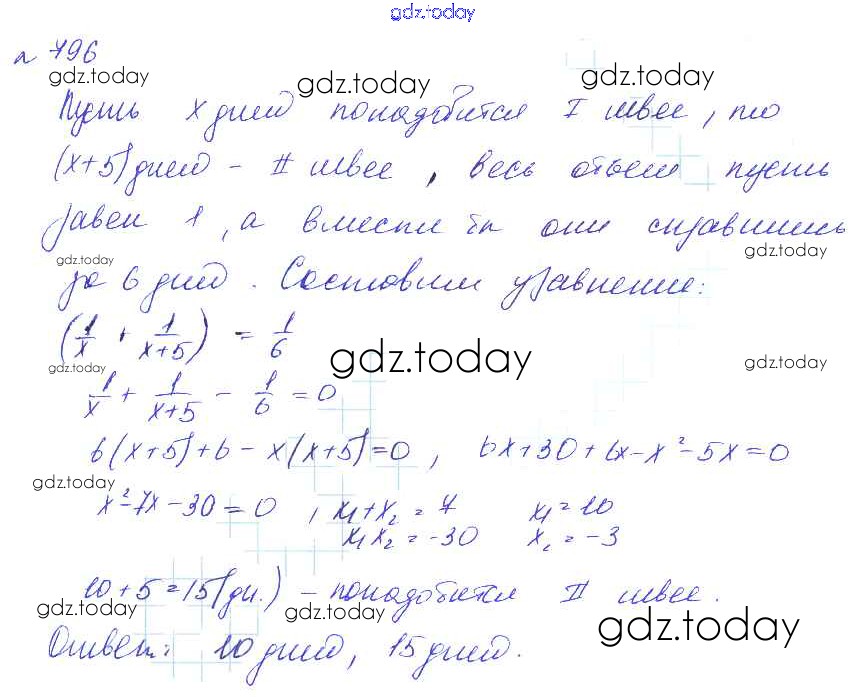 gdz.today
№ 796
gdz.today gdz.today gdz.today
Пусть x дней понадобится I швее, то
(x+5) дней - II швее, весь объем пусть
равен 1, а вместе бы они справились
gdz.today gdz.today
за 6 дней. Составим уравнение:
(1/x + 1/(x+5)) = 1/6
gdz.today gdz.today gdz.today
1/x + 1/(x+5) - 1/6 = 0
6(x+5)+6-x(x+5)=0, 6x+30+6x-x²-5x=0
gdz.today gdz.today
x²-7x-30=0, x₁+x₂=7 x₁=10
x₁x₂=-30 x₂=-3
10+5=15(дн.) - понадобится II швее.
gdz.today gdz.today gdz.today
Ответ: 10 дней, 15 дней.